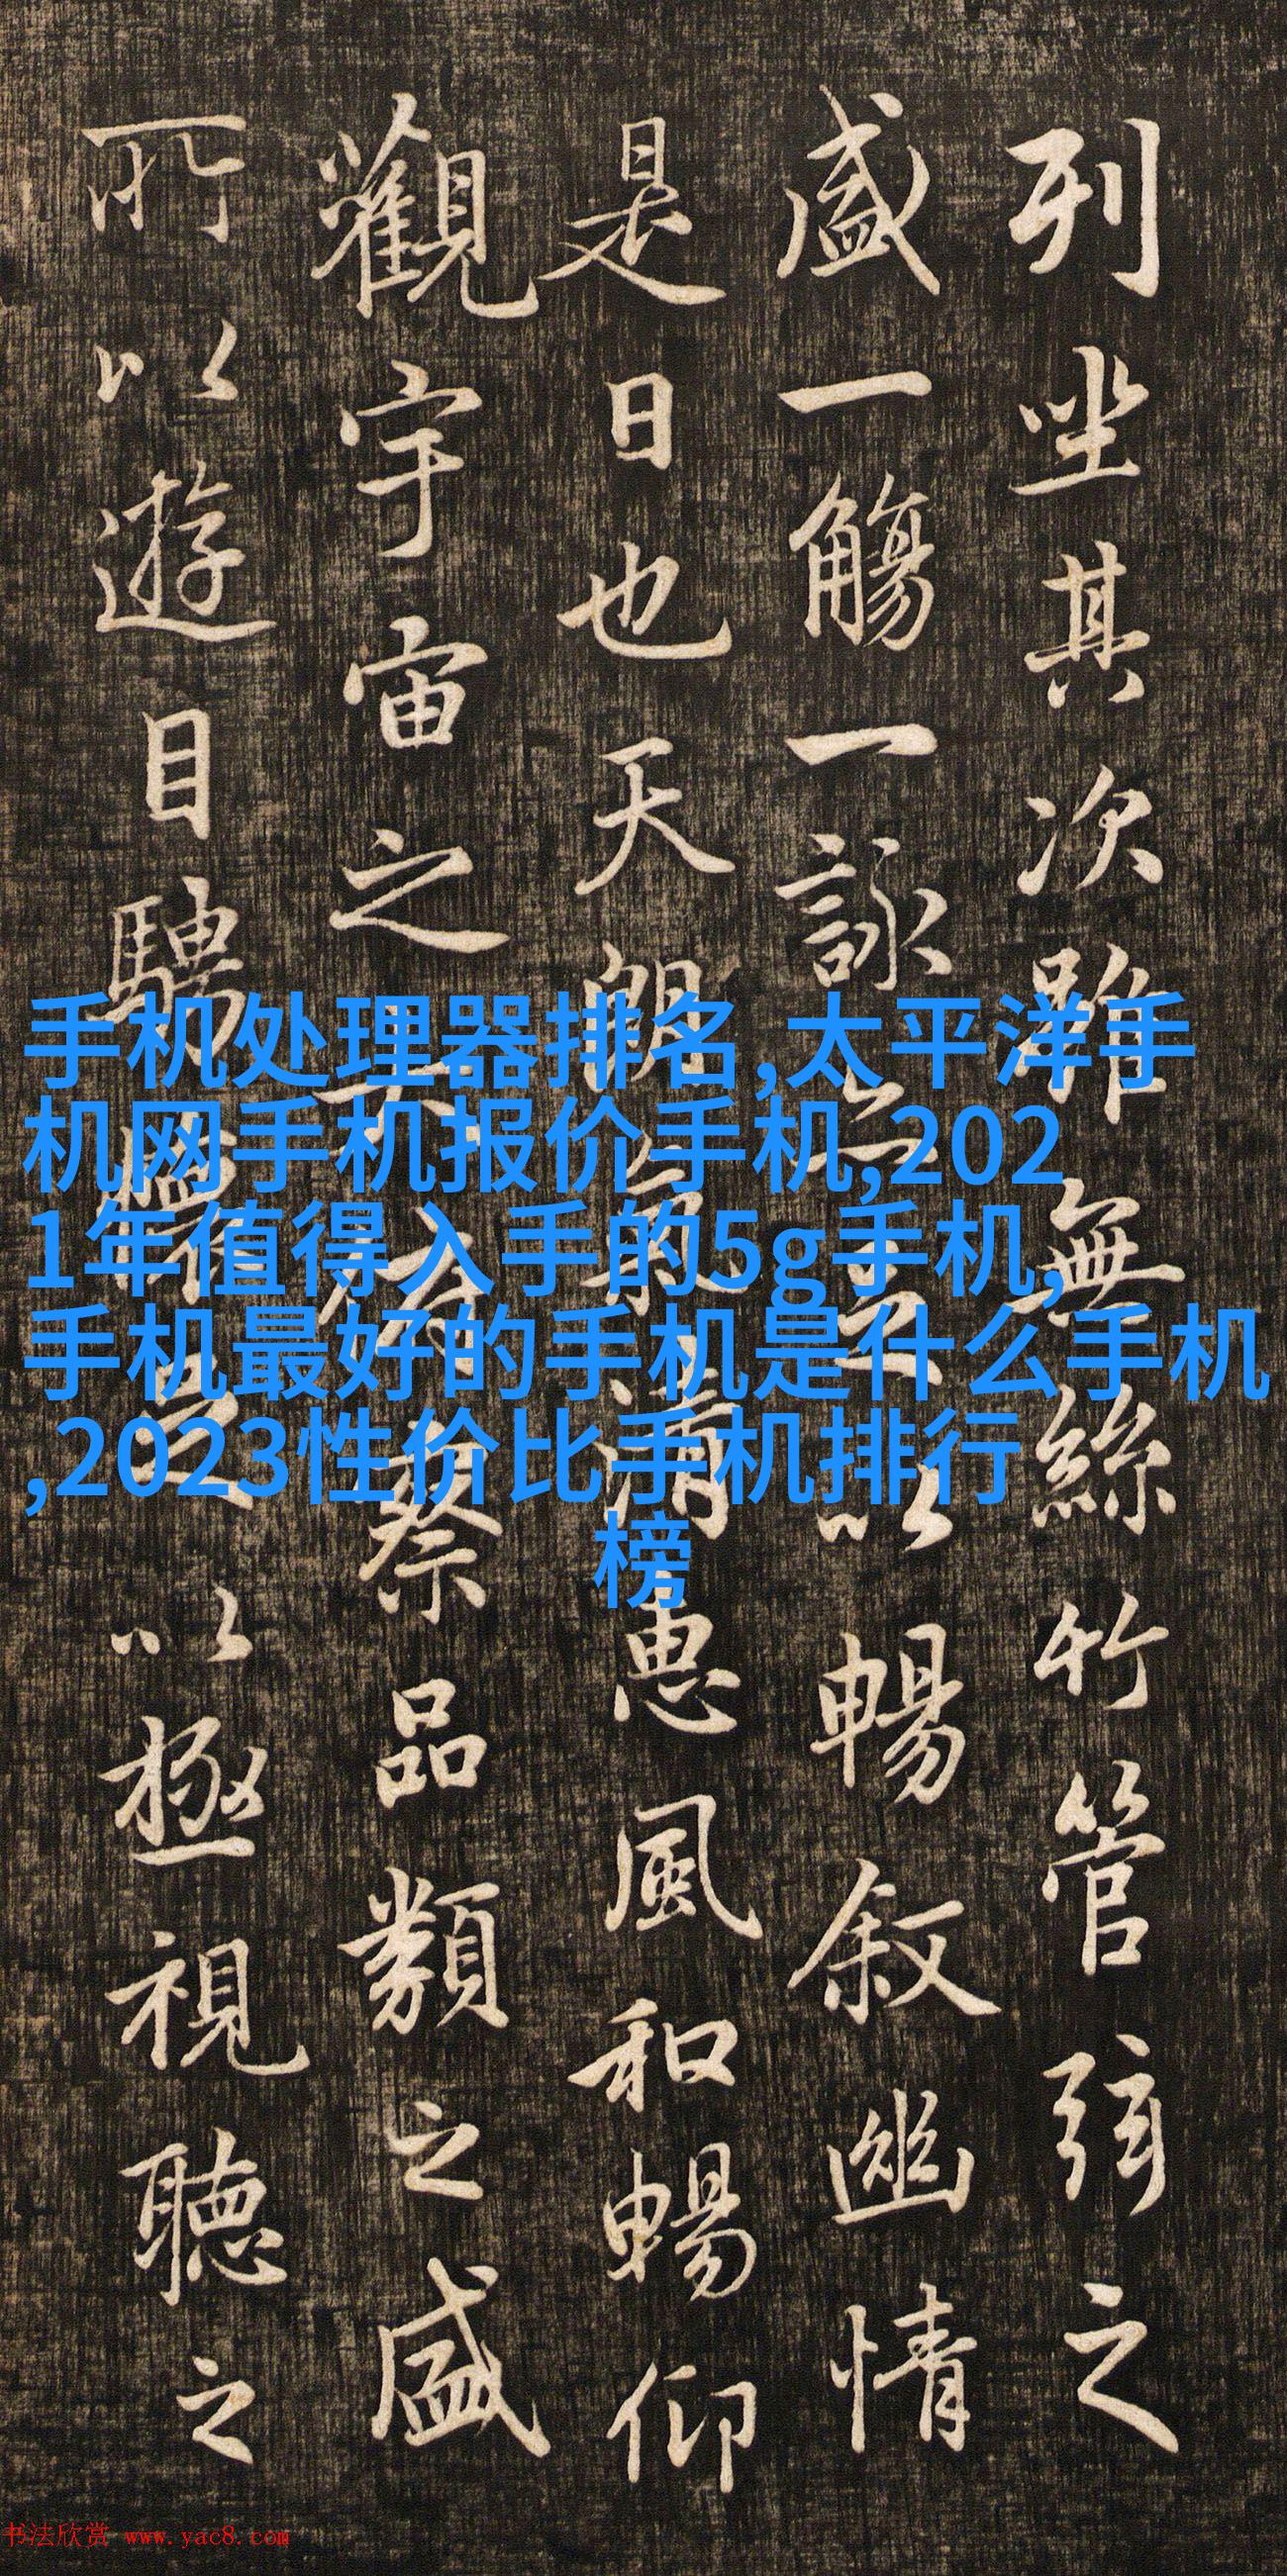 列坐其次雖無絲竹管弦之
盛一觴一詠亦足以暢叙幽情
是日也天朗氣清惠風和暢仰
觀宇宙之大俯察品類之盛
所以遊目騁懷足以極視聽之
手机处理器排名,太平洋手
机网手机报价手机,202
1年值得入手的5g手机,
手机最好的手机是什么手机
,2023性价比手机排行
榜
书法欣赏 www.yac8.com